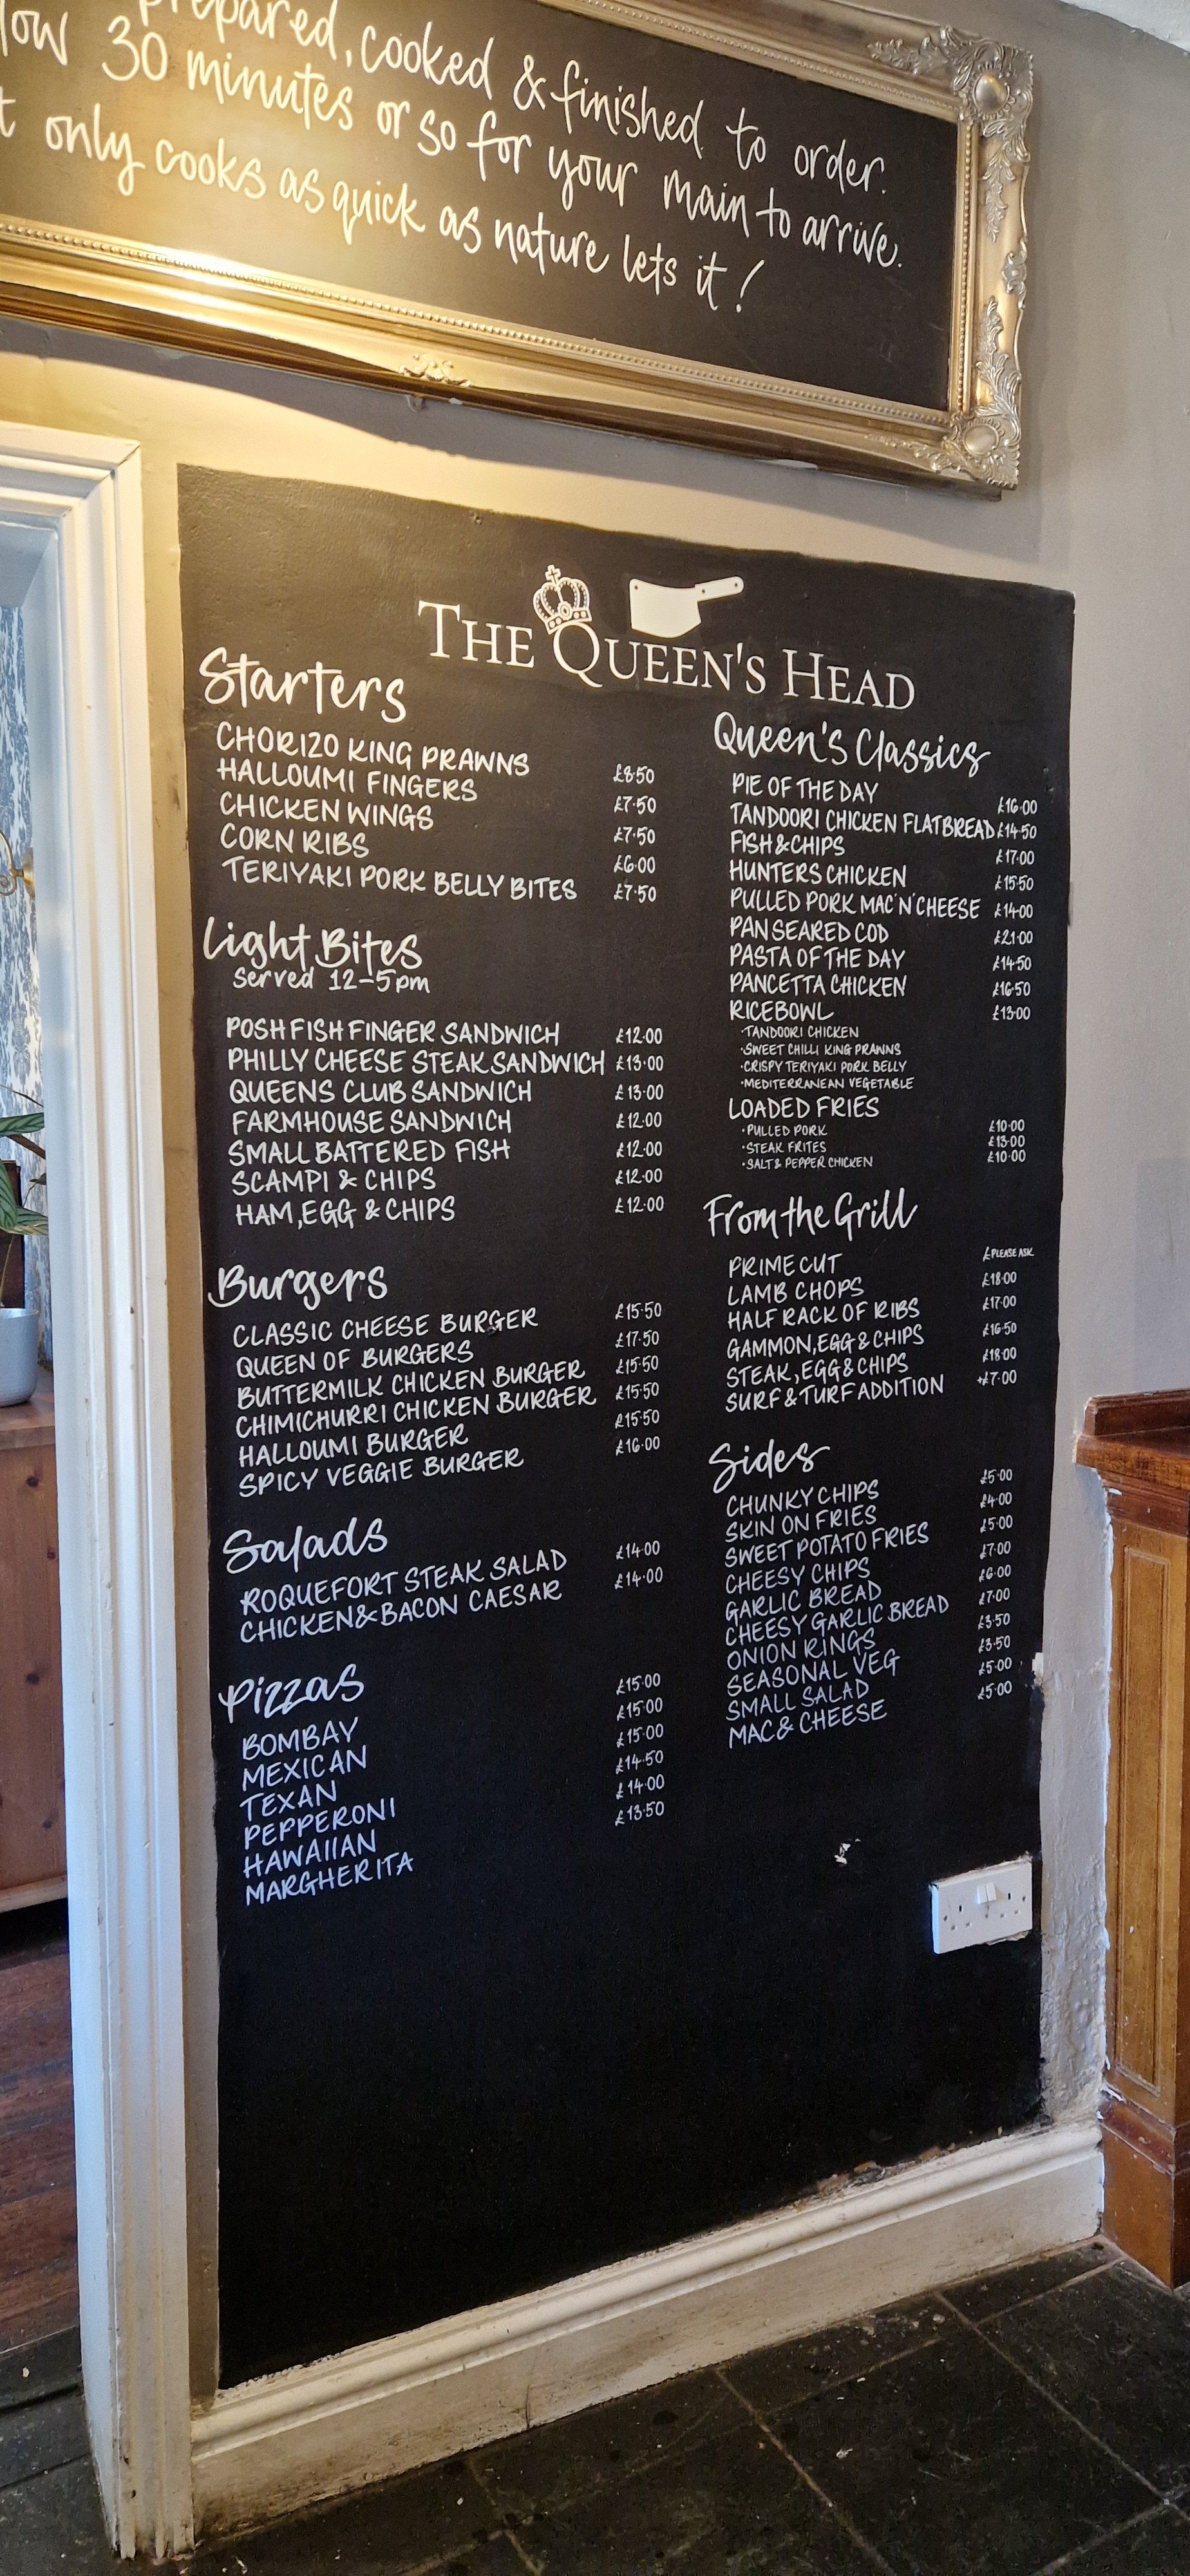 prepared, cooked & finished to order.
low 30 minutes or so for your main to arrive.
t only cooks as quick as nature lets it!
THE QUEEN'S HEAD
Starters
CHORIZO KING PRAWNS £8.50
HALLOUMI FINGERS £7.50
CHICKEN WINGS £7.50
CORN RIBS £6.00
TERIYAKI PORK BELLY BITES £7.50
Light Bites
served 12-5pm
POSH FISH FINGER SANDWICH £12.00
PHILLY CHEESE STEAK SANDWICH £13.00
QUEENS CLUB SANDWICH £13.00
FARMHOUSE SANDWICH £12.00
SMALL BATTERED FISH £12.00
SCAMPI & CHIPS £12.00
HAM, EGG & CHIPS £12.00
Burgers
CLASSIC CHEESE BURGER £15.50
QUEEN OF BURGERS £17.50
BUTTERMILK CHICKEN BURGER £15.50
CHIMICHURRI CHICKEN BURGER £15.50
HALLOUMI BURGER £15.50
SPICY VEGGIE BURGER £16.00
Salads
ROQUEFORT STEAK SALAD £14.00
CHICKEN & BACON CAESAR £14.00
Pizzas
BOMBAY £15.00
MEXICAN £15.00
TEXAN £15.00
PEPPERONI £14.50
HAWAIIAN £14.00
MARGHERITA £13.50
Queen's Classics
PIE OF THE DAY £16.00
TANDOORI CHICKEN FLATBREAD £14.50
FISH & CHIPS £17.00
HUNTERS CHICKEN £15.50
PULLED PORK MAC'N'CHEESE £14.00
PAN SEARED COD £21.00
PASTA OF THE DAY £14.50
PANCETTA CHICKEN £16.50
RICEBOWL £13.00
·TANDOORI CHICKEN
·SWEET CHILLI KING PRAWNS
·CRISPY TERIYAKI PORK BELLY
·MEDITERRANEAN VEGETABLE
LOADED FRIES
·PULLED PORK £10.00
·STEAK FRITES £13.00
·SALT & PEPPER CHICKEN £10.00
From the Grill
PRIME CUT £PLEASE ASK
LAMB CHOPS £18.00
HALF RACK OF RIBS £17.00
GAMMON, EGG & CHIPS £16.50
STEAK, EGG & CHIPS £18.00
SURF & TURF ADDITION +£7.00
Sides
CHUNKY CHIPS £5.00
SKIN ON FRIES £4.00
SWEET POTATO FRIES £5.00
CHEESY CHIPS £7.00
GARLIC BREAD £6.00
CHEESY GARLIC BREAD £7.00
ONION RINGS £3.50
SEASONAL VEG £3.50
SMALL SALAD £5.00
MAC & CHEESE £5.00